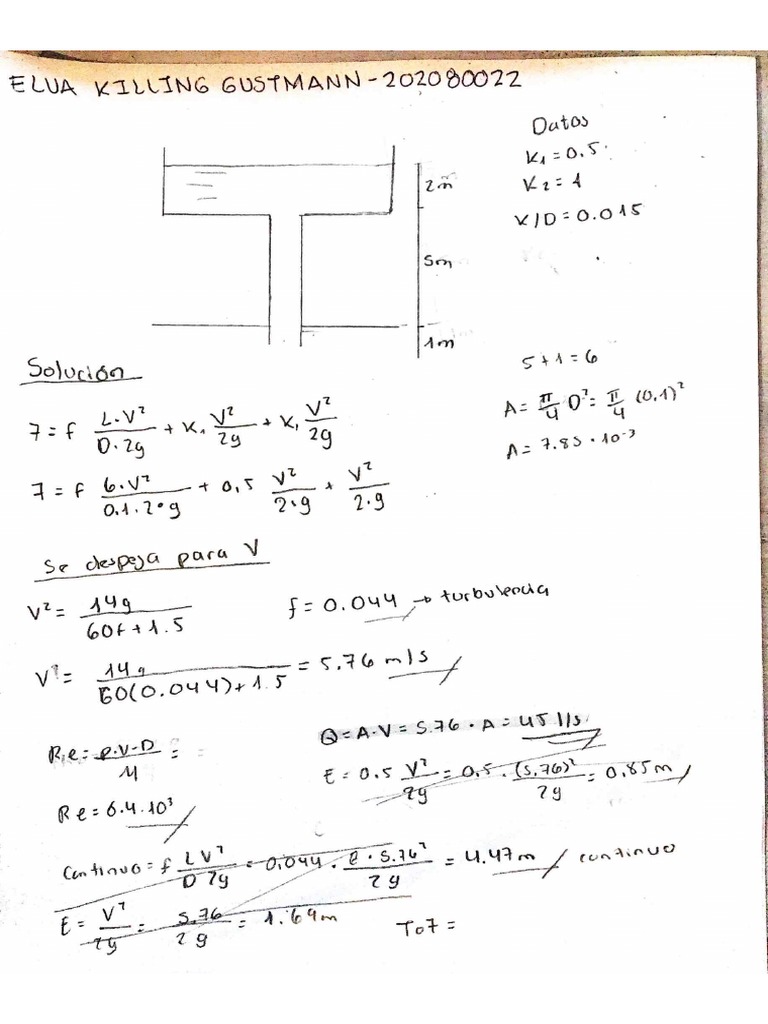 ELUA KILLING GUSTMANN - 202080022
Datos
K1 = 0.5
K2 = 1
K/D = 0.015
2m
5m
1m
5+1=6
A = π/4 D² = π/4 (0.1)²
A = 7.85 · 10⁻³
Solución
7 = f L·V²/D·2g + K1 V²/2g + K1 V²/2g
7 = f 6·V²/0.1·2·g + 0,5 V²/2·g + V²/2·g
Se despeja para V
V² = 14g/60f+1.5
f = 0.044 → turbulencia
V² = 14g/60(0.044)+1.5 = 5.76 m/s
Re = ρ·V·D/M =
Q = A·V = 5.76 · A = 45 l/s
E = 0.5 V²/2g = 0.5 · (5.76)²/2g = 0.85m
Re = 6.4·10³
Continuo = f L V²/D 2g = 0.044 · 6·5.76²/2g = 4.47m continuo
E = V²/2g = 5.76/2g = 1.69m
To7 =